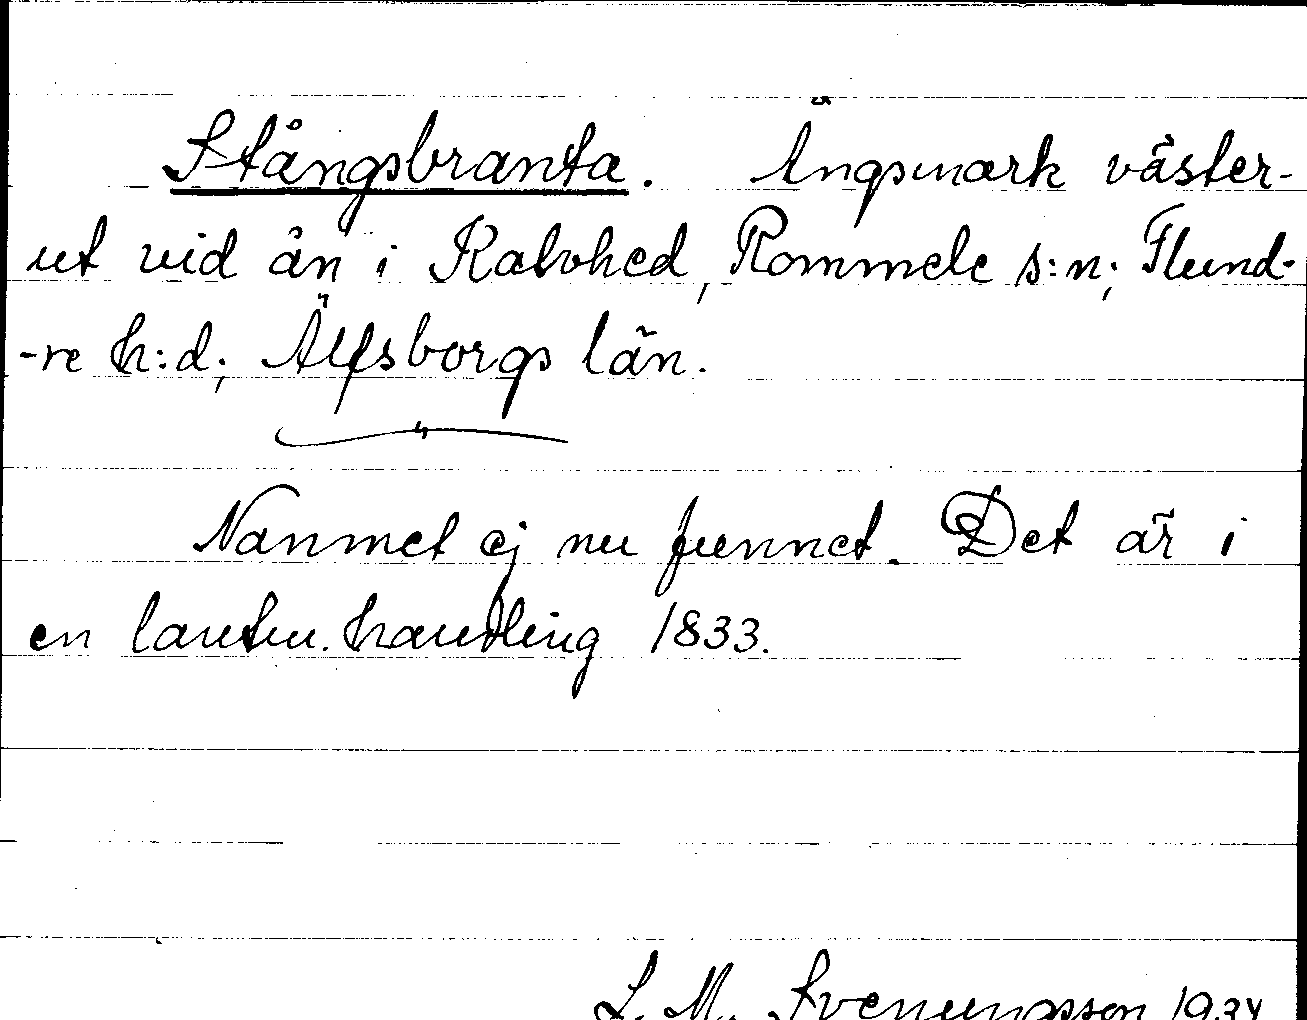 Stångsbranta. Ängsmark väster-
ut vid ån i Kalvhed, Rommele s:n; Flund-
-re h:d; Älfsborgs län.
Namnet ej nu funnet. Det är i
en lantm. handling 1833.
L. M. Svenungsson 1934